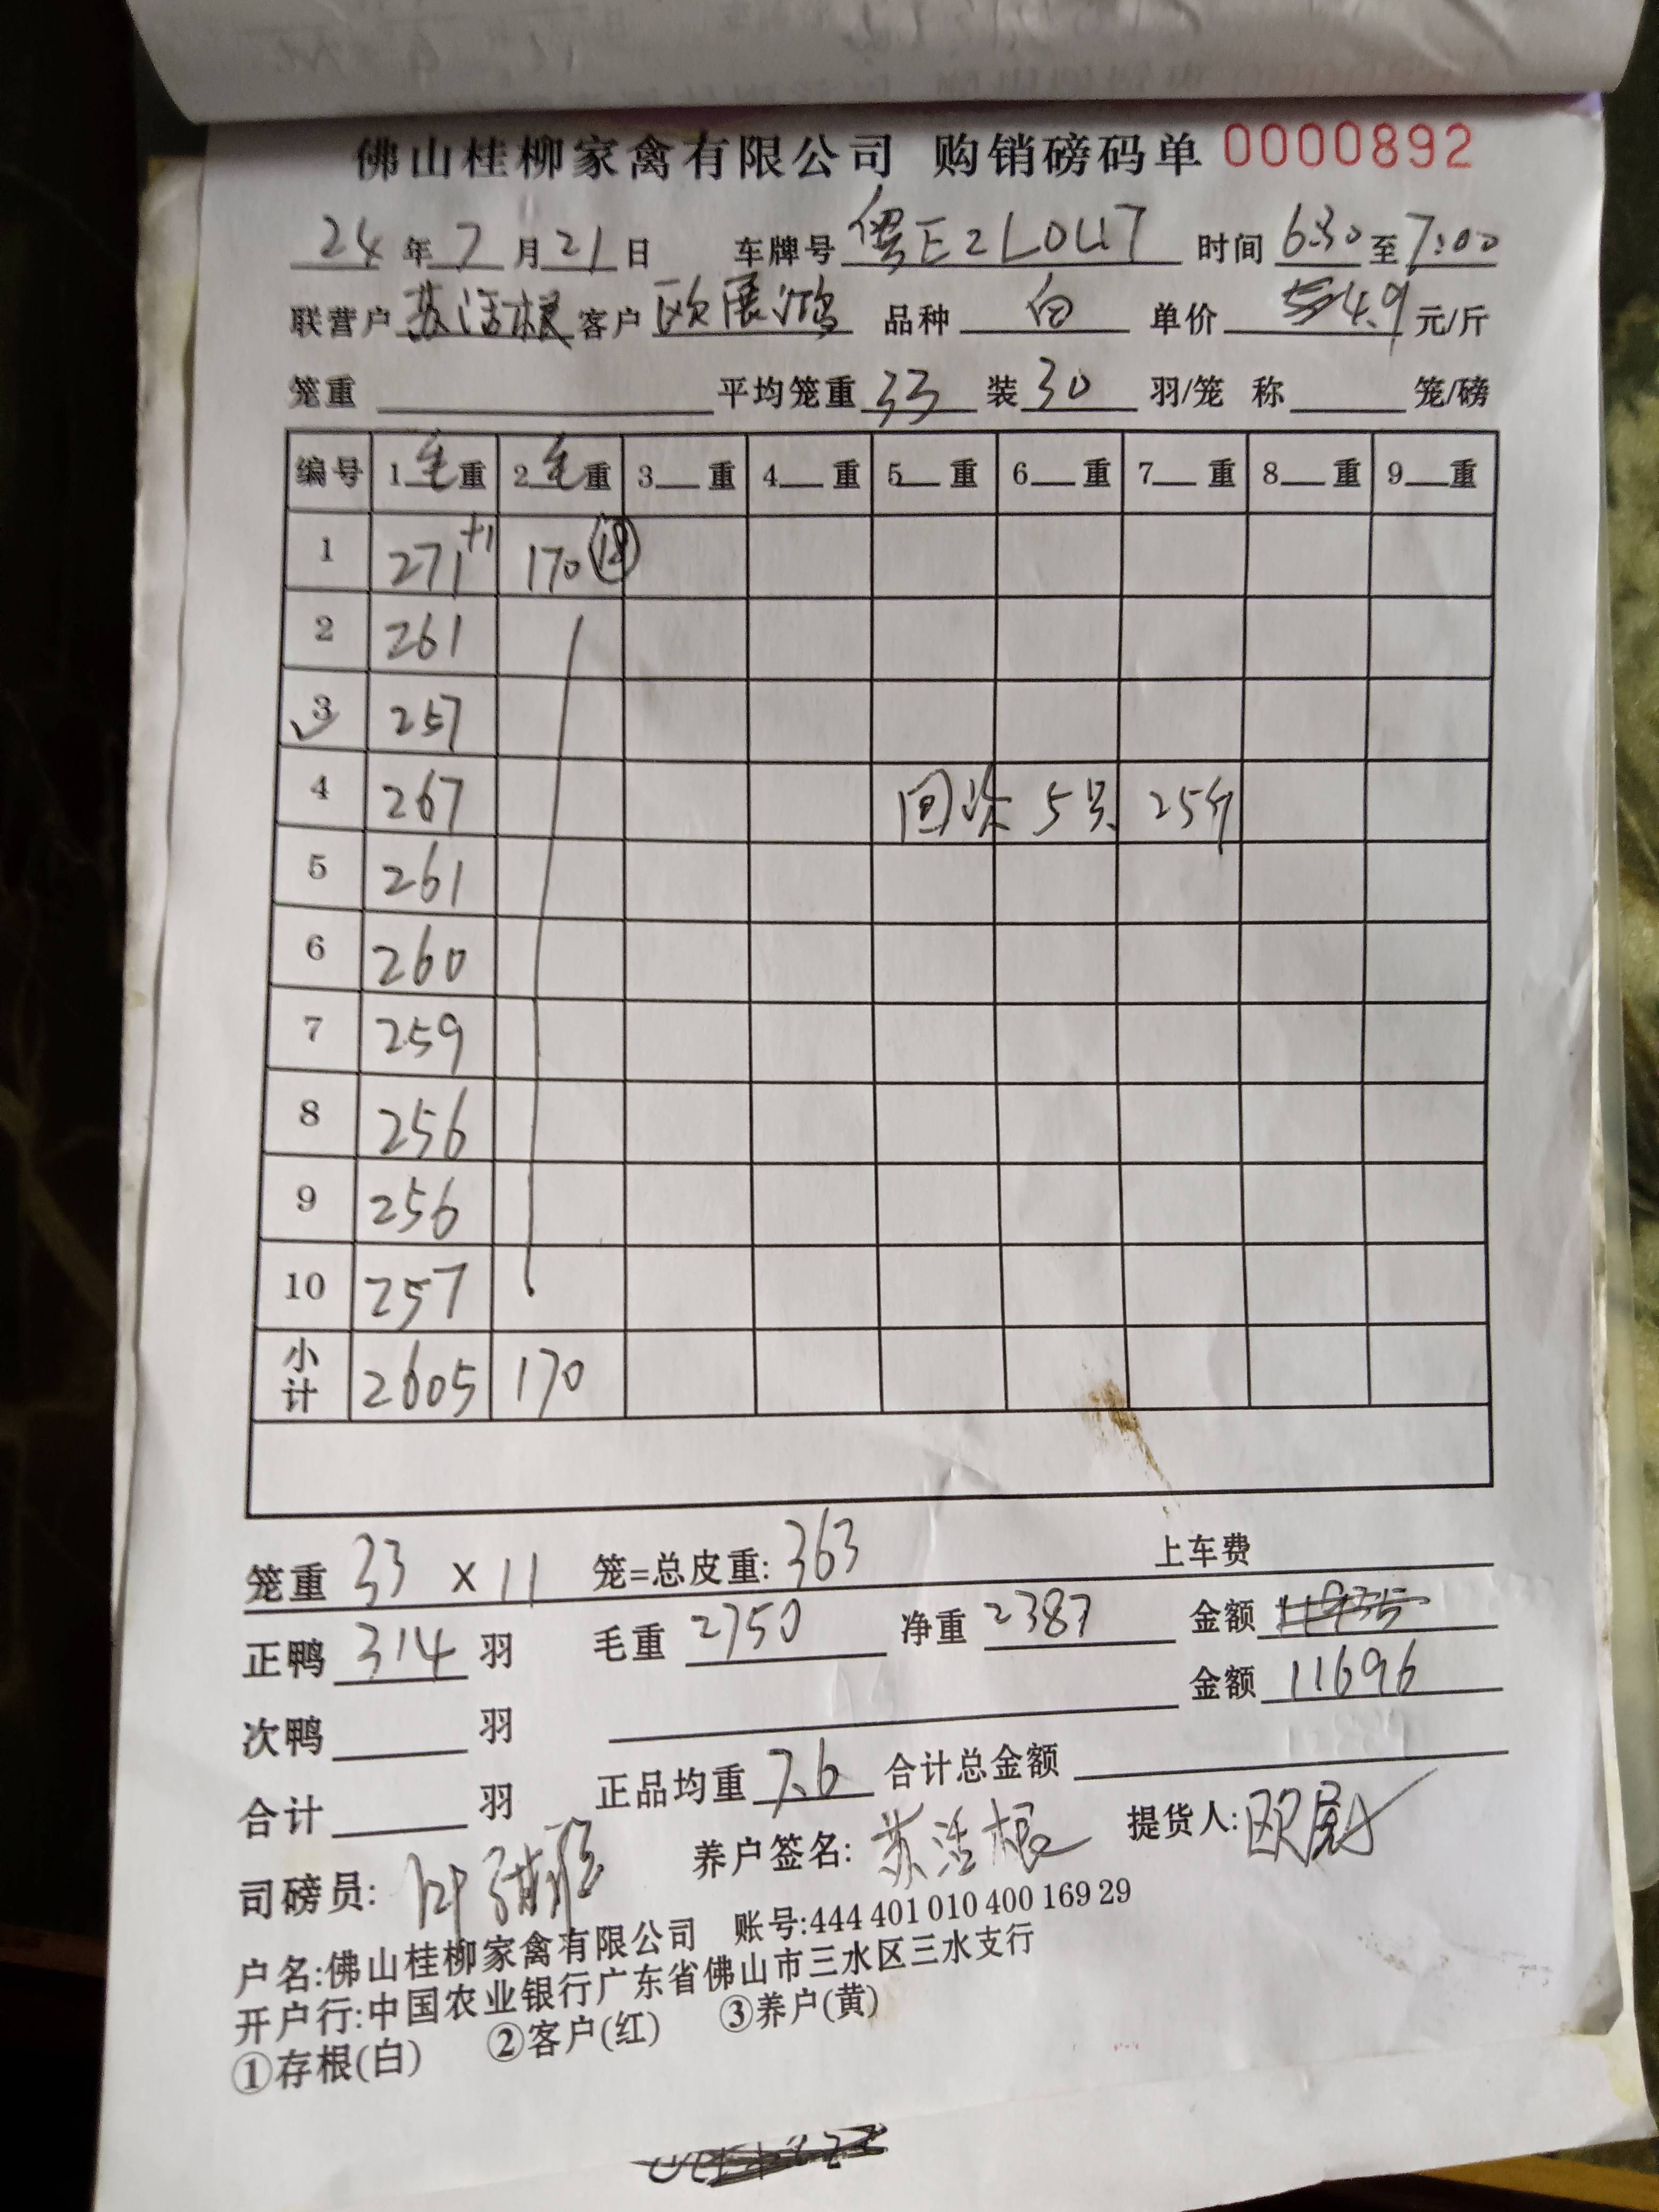 佛山桂柳家禽有限公司 购销磅码单 0000892
24 年 7 月 21 日 车牌号 粤E2L0U7 时间 6:30 至 7:00
联营户 苏活根 客户 欧展鸿 品种 白 单价 4.9 元/斤
笼重 平均笼重 33 装 30 羽/笼 称 笼/磅
编号 1 毛 重 2 毛 重 3 重 4 重 5 重 6 重 7 重 8 重 9 重
1 271 +1 170 ⑱
2 261
3 257
4 267 回 5只 25斤
5 261
6 260
7 259
8 256
9 256
10 257
小计 2605 170
笼重 33 x 11 笼=总皮重: 363 上车费
正鸭 314 羽 毛重 2750 净重 2387 金额 11935
金额 11696
次鸭 羽
合计 羽 正品均重 7.6 合计总金额
司磅员: 养户签名: 苏活根 提货人: 欧
户名:佛山桂柳家禽有限公司 账号:444 401 010 400 169 29
开户行:中国农业银行广东省佛山市三水区三水支行
①存根(白) ②客户(红) ③养户(黄)